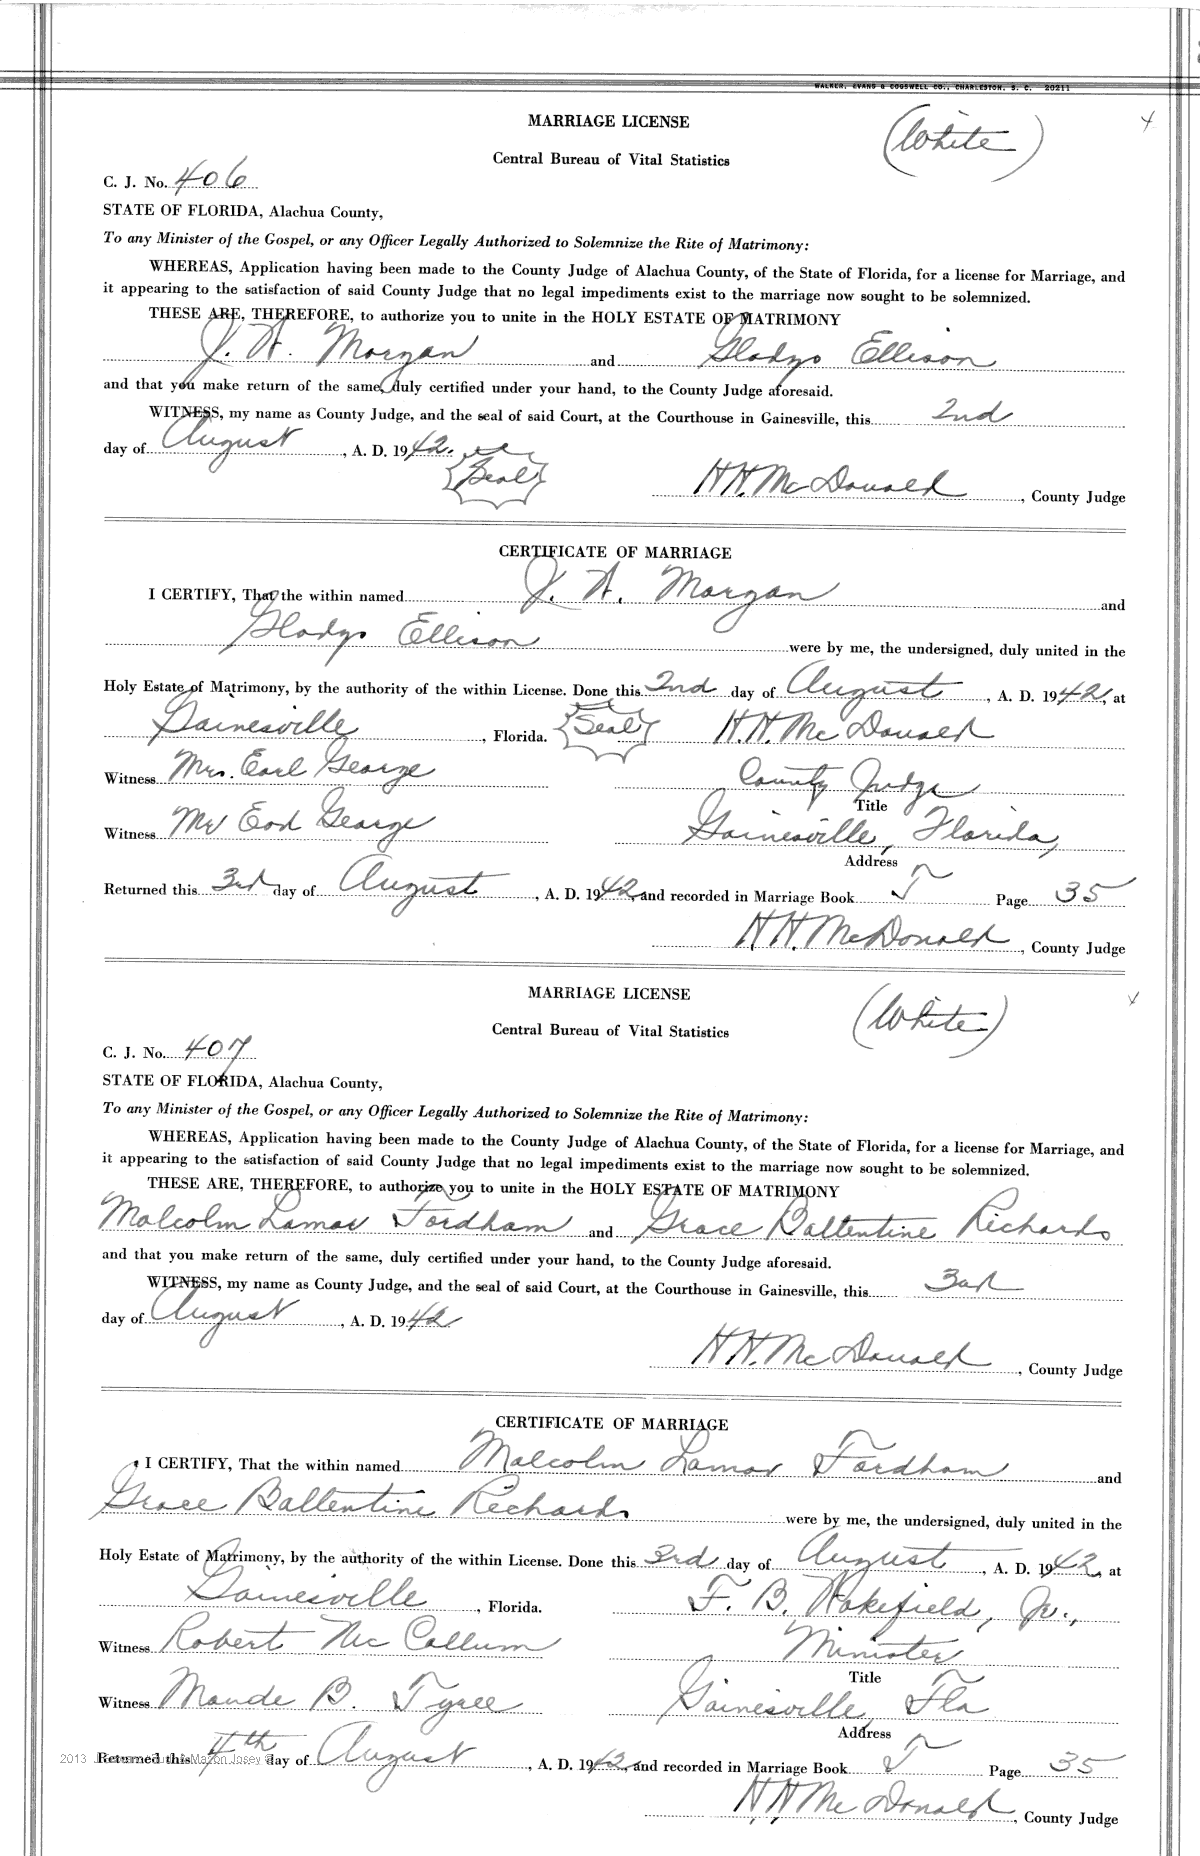 WALKER, EVANS & COGSWELL CO., CHARLESTON, S. C. 20211
MARRIAGE LICENSE
(White)
Central Bureau of Vital Statistics
C. J. No. 406
STATE OF FLORIDA, Alachua County,
To any Minister of the Gospel, or any Officer Legally Authorized to Solemnize the Rite of Matrimony:
WHEREAS, Application having been made to the County Judge of Alachua County, of the State of Florida, for a license for Marriage, and
it appearing to the satisfaction of said County Judge that no legal impediments exist to the marriage now sought to be solemnized.
THESE ARE, THEREFORE, to authorize you to unite in the HOLY ESTATE OF MATRIMONY
Morgan and Gladys Ellison
and that you make return of the same, duly certified under your hand, to the County Judge aforesaid.
WITNESS, my name as County Judge, and the seal of said Court, at the Courthouse in Gainesville, this 2nd
day of August, A. D. 1942. Seal
H. H. McDonald, County Judge
CERTIFICATE OF MARRIAGE
I CERTIFY, That the within named Morgan and
Gladys Ellison were by me, the undersigned, duly united in the
Holy Estate of Matrimony, by the authority of the within License. Done this 2nd day of August, A. D. 1942, at
Gainesville, Florida. Seal H. H. McDonald
Witness Mrs. Earl George County Judge
Title
Witness Mr George Gainesville, Florida,
Address
Returned this 3rd day of August, A. D. 1942, and recorded in Marriage Book T Page 35
H. H. McDonald, County Judge
MARRIAGE LICENSE
(White)
Central Bureau of Vital Statistics
C. J. No. 407
STATE OF FLORIDA, Alachua County,
To any Minister of the Gospel, or any Officer Legally Authorized to Solemnize the Rite of Matrimony:
WHEREAS, Application having been made to the County Judge of Alachua County, of the State of Florida, for a license for Marriage, and
it appearing to the satisfaction of said County Judge that no legal impediments exist to the marriage now sought to be solemnized.
THESE ARE, THEREFORE, to authorize you to unite in the HOLY ESTATE OF MATRIMONY
Malcolm Lamar Fordham and Grace Ballentine Richards
and that you make return of the same, duly certified under your hand, to the County Judge aforesaid.
WITNESS, my name as County Judge, and the seal of said Court, at the Courthouse in Gainesville, this 3rd
day of August, A. D. 1942
H. H. McDonald, County Judge
CERTIFICATE OF MARRIAGE
I CERTIFY, That the within named Malcolm Lamar Fordham and
Grace Ballentine Richards were by me, the undersigned, duly united in the
Holy Estate of Matrimony, by the authority of the within License. Done this 3rd day of August, A. D. 1942, at
Gainesville, Florida. F. B. Wakefield, Jr.,
Witness Robert McCollum Minister
Title
Witness Maude B. Tyree Gainesville, Fla
Address
Returned this 4th day of August, A. D. 1942, and recorded in Marriage Book T Page 35
H. H. McDonald, County Judge